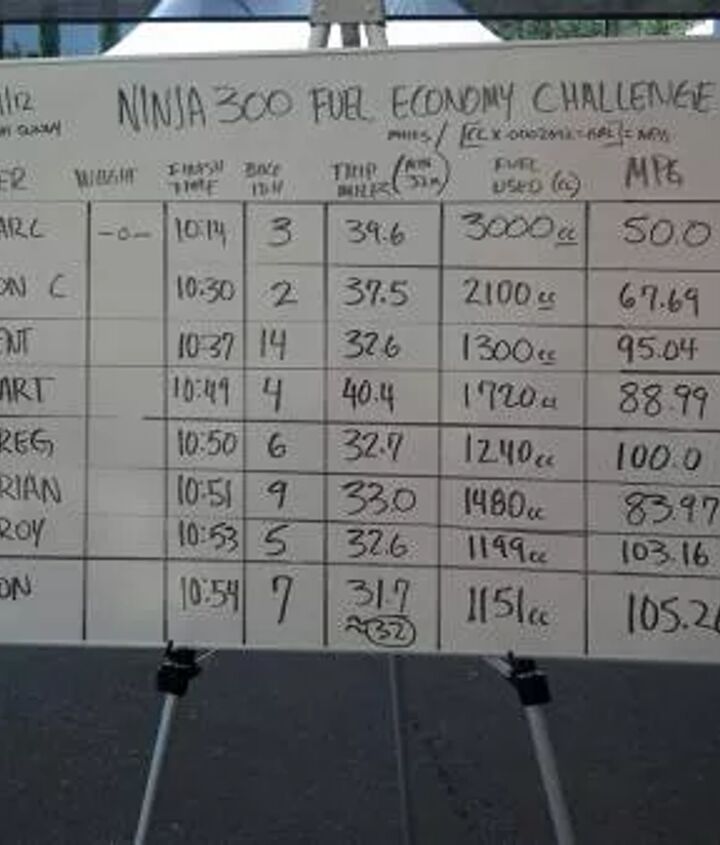 1/12 NINJA 300 FUEL ECONOMY CHALLENGE
SUNNY MILES /
ER WEIGHT FINISH TIME BIKE ID# TRIP MILES (MIN 32m) FUEL USED (cc) MPG
ARC -0- 10:14 3 39.6 3000cc 50.0
ON C 10:30 2 37.5 2100cc 67.69
ENT 10:37 14 32.6 1300cc 95.04
ART 10:49 4 40.4 1720cc 88.99
REG 10:50 6 32.7 1240cc 100.0
RIAN 10:51 9 33.0 1480cc 83.97
ROY 10:53 5 32.6 1199cc 103.16
ON 10:54 7 31.7 1151cc 105.2
≈32